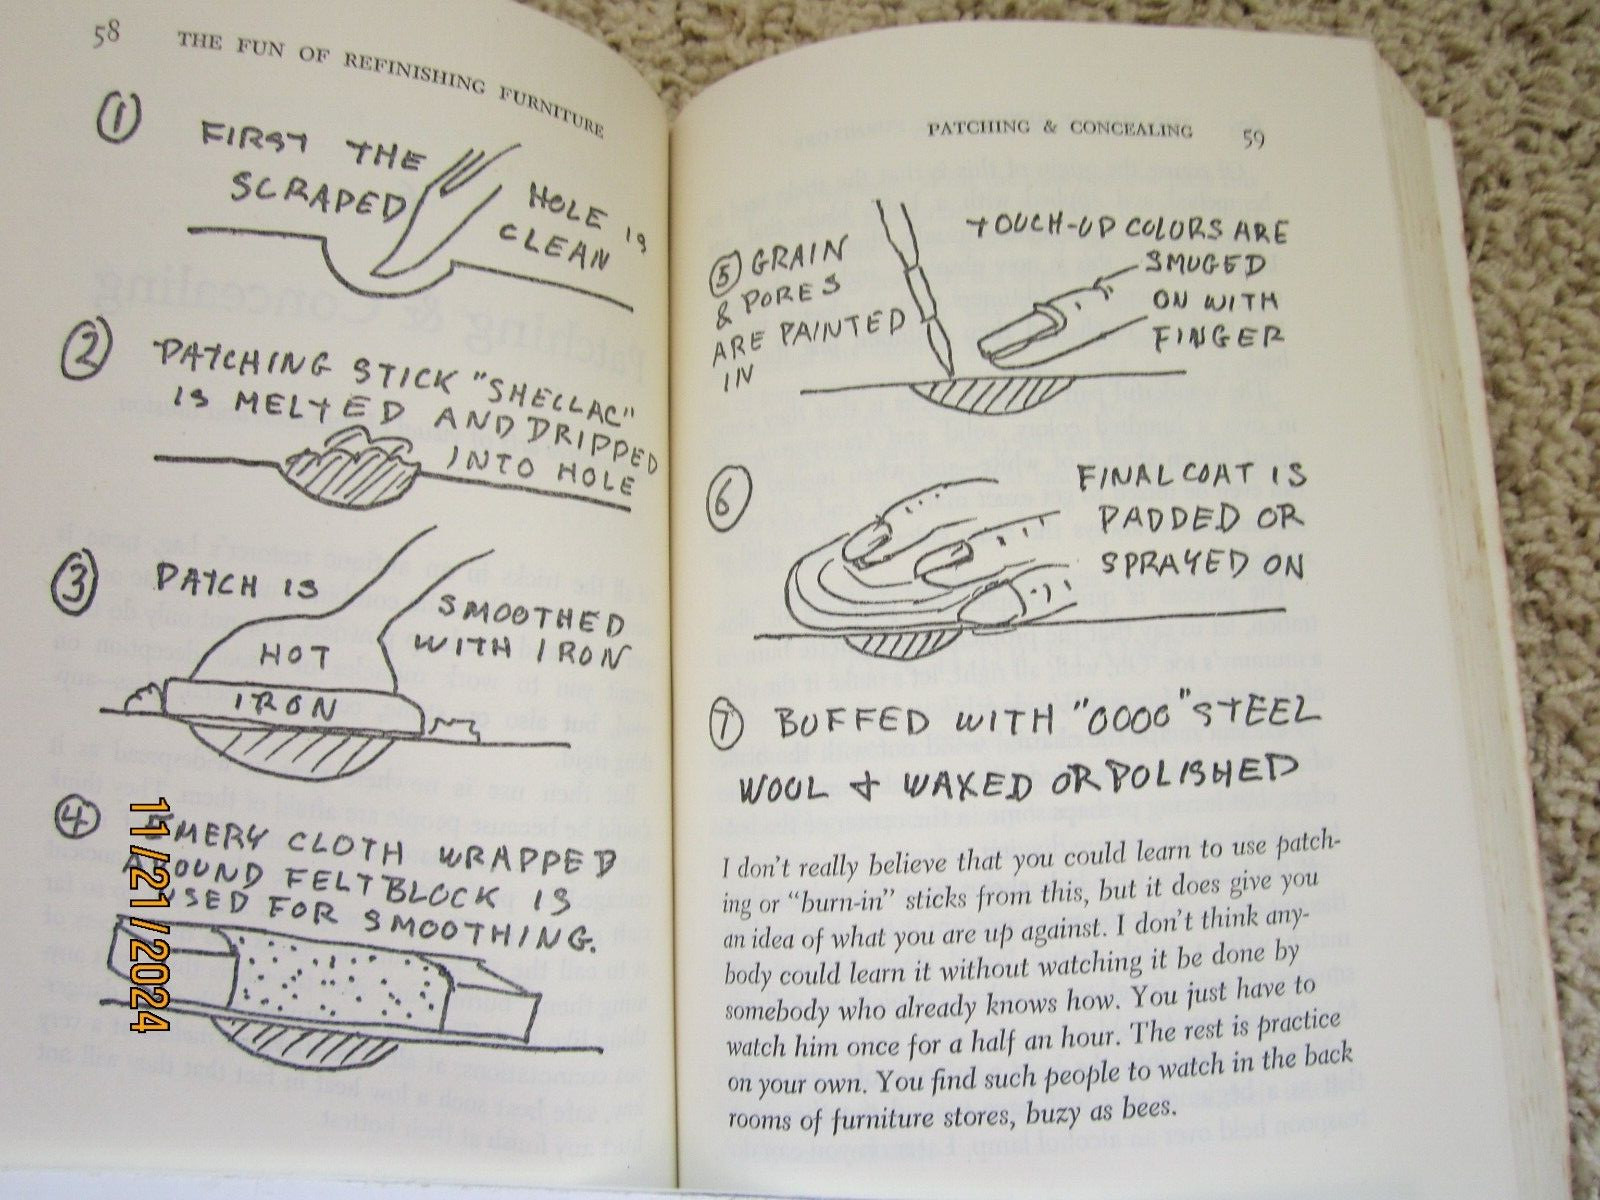 58
THE FUN OF REFINISHING FURNITURE
1
FIRST THE
SCRAPED
HOLE IS
CLEAN
2
PATCHING STICK "SHELLAC"
IS MELTED AND DRIPPED
INTO HOLE
3
PATCH IS
SMOOTHED
WITH IRON
HOT
IRON
4
EMERY CLOTH WRAPPED
AROUND FELT BLOCK IS
USED FOR SMOOTHING.
11/21/2024
PATCHING & CONCEALING 59
5 GRAIN
& PORES
ARE PAINTED
IN
TOUCH-UP COLORS ARE
SMUGED
ON WITH
FINGER
6
FINAL COAT IS
PADDED OR
SPRAYED ON
7 BUFFED WITH "0000" STEEL
WOOL & WAXED OR POLISHED
I don't really believe that you could learn to use patch-
ing or "burn-in" sticks from this, but it does give you
an idea of what you are up against. I don't think any-
body could learn it without watching it be done by
somebody who already knows how. You just have to
watch him once for a half an hour. The rest is practice
on your own. You find such people to watch in the back
rooms of furniture stores, buzy as bees.